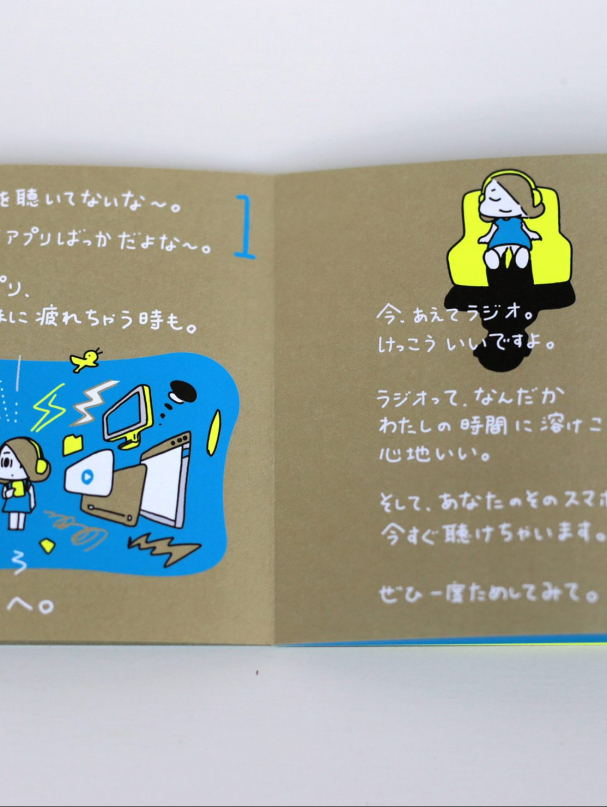 を聴いてないな〜。
アプリばっかだよな〜。
プリ、
に疲れちゃう時も。
ろ
へ。
1
今、あえてラジオ。
けっこういいですよ。
ラジオって、なんだか
わたしの時間に溶けこ
心地いい。
そして、あなたのそのスマホ
今すぐ聴けちゃいます。
ぜひ一度ためしてみて。